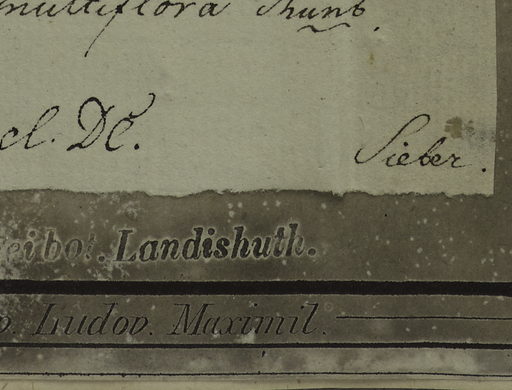 multiflora Thunb.
el. DC. Sieber.
ei bot. Landishuth.
Ludov. Maximil.